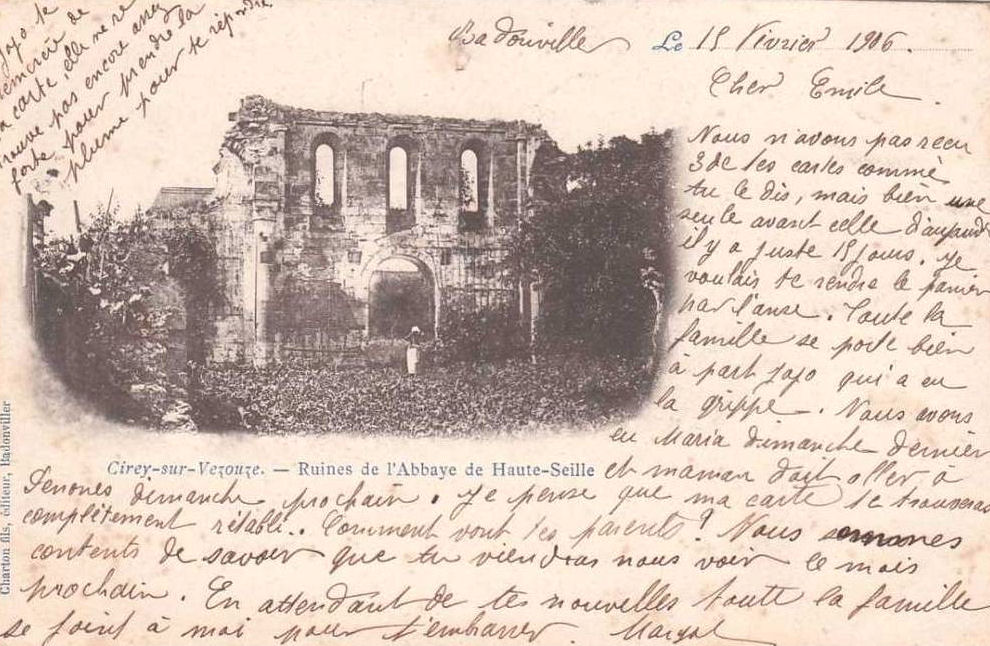 Jojo te
remercie de
ta carte, elle ne se
trouve pas encore assez
forte pour prendre la
plume pour te répondre
Badonviller Le 15 Février 1906.
Cher Emile.
Nous n'avons pas reçu
3 de tes cartes comme
tu le dis, mais bien une
seule avant celle d'aujourd
il y a juste 15 jours. Je
voulais te rendre le panier
par l'anse. Toute la
famille se porte bien
à part Jojo qui a eu
la grippe. Nous avons
eu Maria dimanche dernier
Cirey-sur-Vezouze. — Ruines de l'Abbaye de Haute-Seille
et maman doit aller à
Senones dimanche prochain. Je pense que ma carte te trouveras
complètement rétabli. Comment vont tes parents? Nous sommes
contents de savoir que tu viendras nous voir le mois
prochain. En attendant de tes nouvelles toute la famille
se joint à moi pour t'embrasser. Margot
Charton fils, éditeur, Badonviller